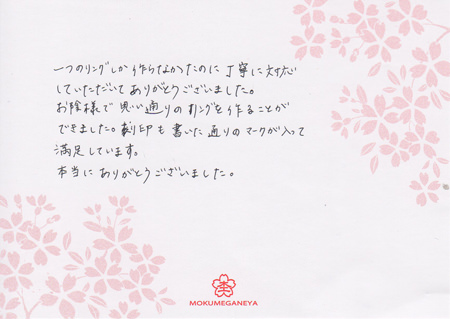 一つのリングしか作らなかったのに丁寧に対応
していただいてありがとうございました。
お陰様で思い通りのリングを作ることが
できました。刻印も書いた通りのマークが入って
満足しています。
本当にありがとうございました。
MOKUMEGANEYA